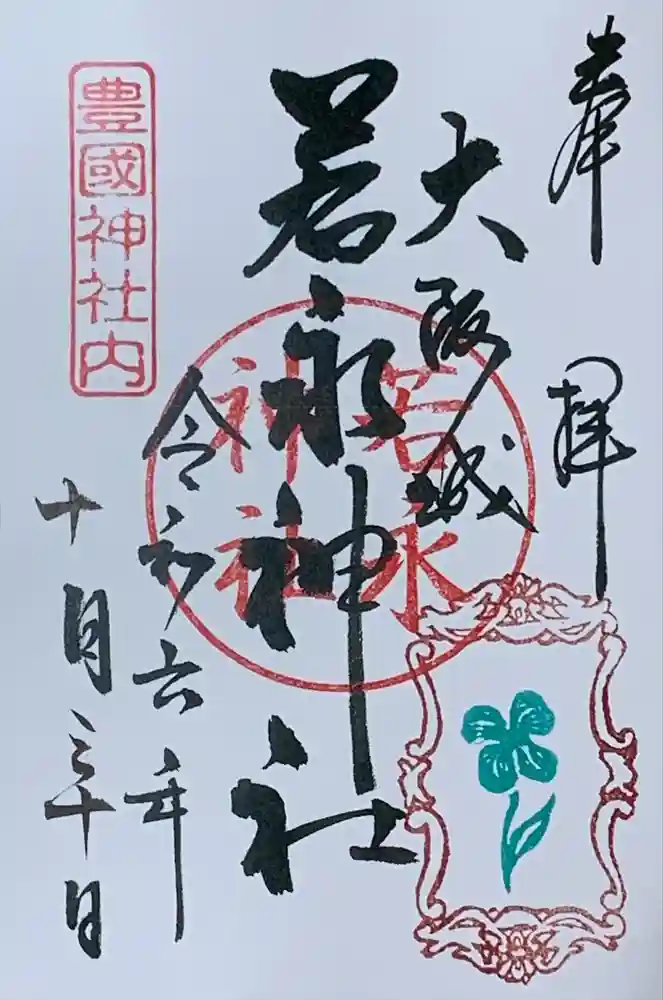 奉拝
大阪城
若永神社
若永
神社
令和六年
十月三十日
豊國神社内